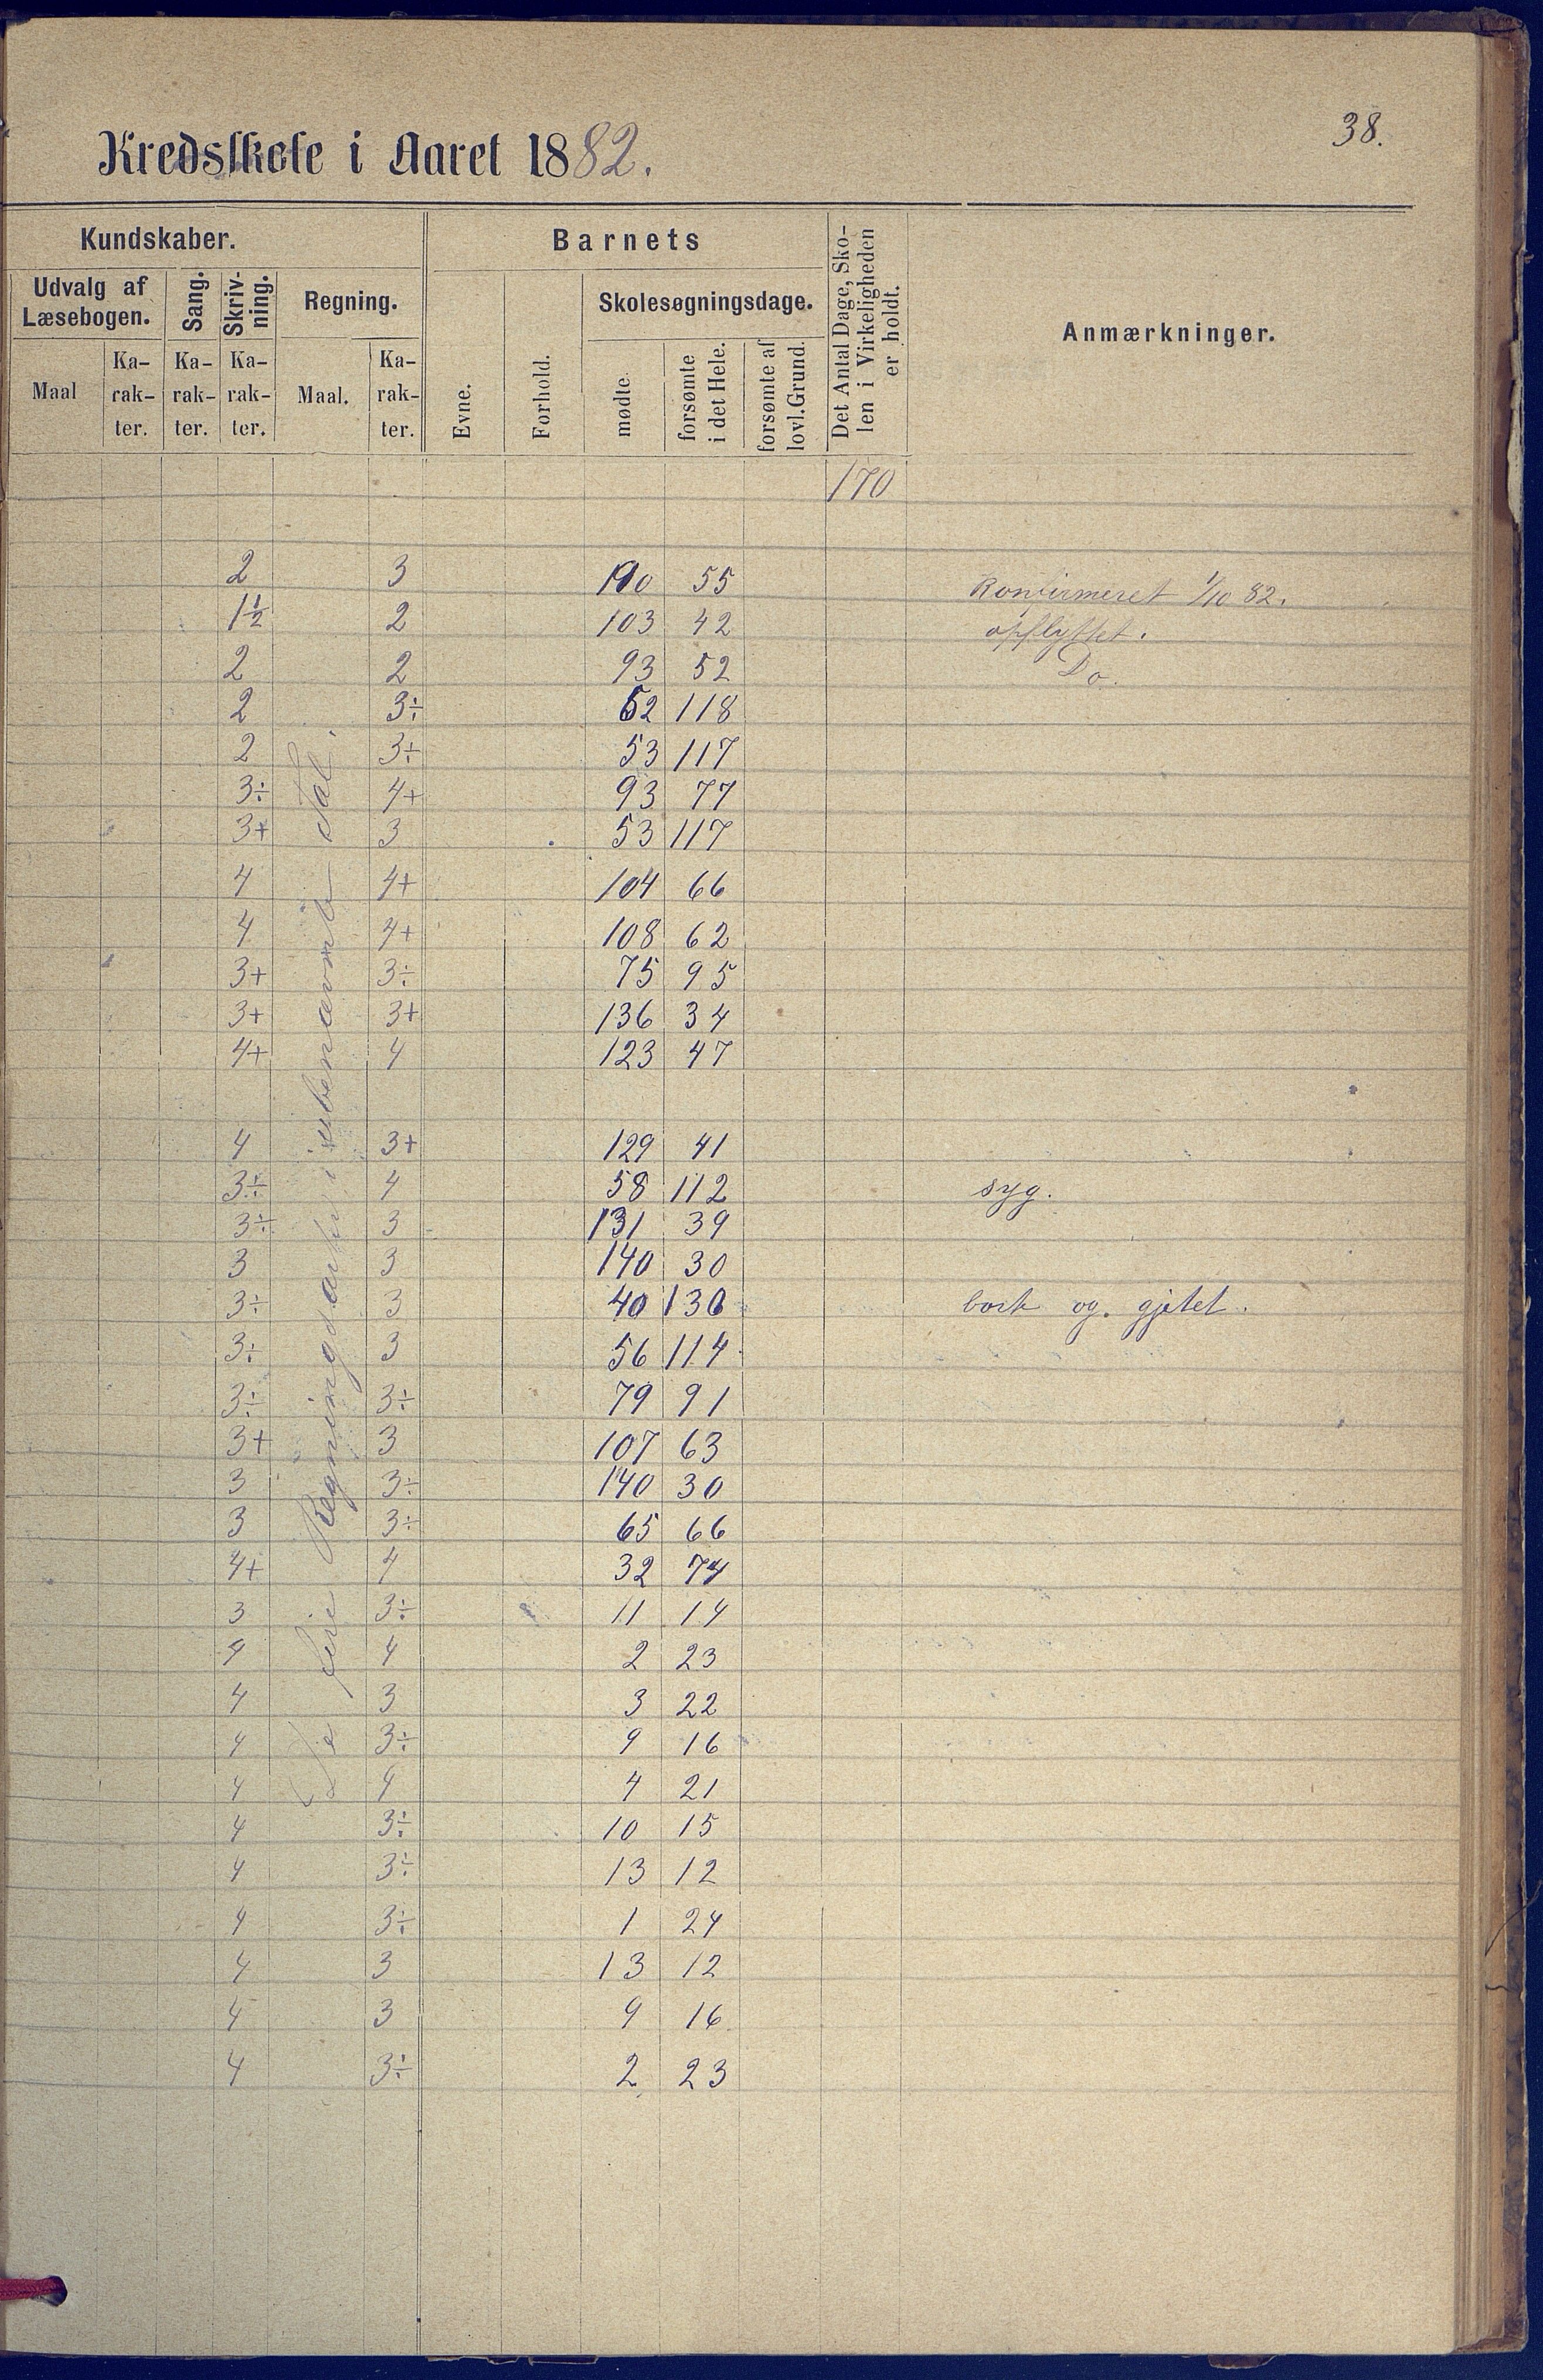 38.
Kredsskole i Aaret 1882.
Kundskaber.
Barnets
Det Antal Dage, Sko-
len i Virkeligheden
er holdt.
Anmærkninger.
Udvalg af
Læsebogen.
Sang.
Skriv-
ning.
Regning.
Evne.
Forhold.
Skolesøgningsdage.
Maal
Ka-
rak-
ter.
Ka-
rak-
ter.
Ka-
rak-
ter.
Maal.
Ka-
rak-
ter.
mødte
forsømte
i det Hele.
forsømte af
lovl. Grund.
De fire Regningsarter i ubenævnte Tal.
170
2 3 55 Konfirmeret 1/10 82.
1½ 2 103 42 opflyttet.
2 2 93 52 Do.
2 3÷ 52 118
2 3÷ 53 117
3÷ 4+ 93 77
3+ 3 53 117
4 4+ 104 66
4 4+ 108 62
3+ 3÷ 75 95
3+ 3+ 136 34
4+ 4 123 47
4 3+ 129 41
3÷ 4 58 112 syg.
3÷ 3 131 39
3 3 140 30
3÷ 3 40 130 bort og gjætet.
3÷ 3 56 114
3÷ 3÷ 79 91
3+ 3 107 63
3 3÷ 140 30
3 3÷ 65 66
4+ 4 32 74
3 3÷ 11 14
4 4 2 23
4 3 3 22
4 3÷ 9 16
4 4 4 21
4 3÷ 10 15
4 3÷ 13 12
4 3÷ 1 24
4 3 13 12
4 3 9 16
4 3÷ 2 23